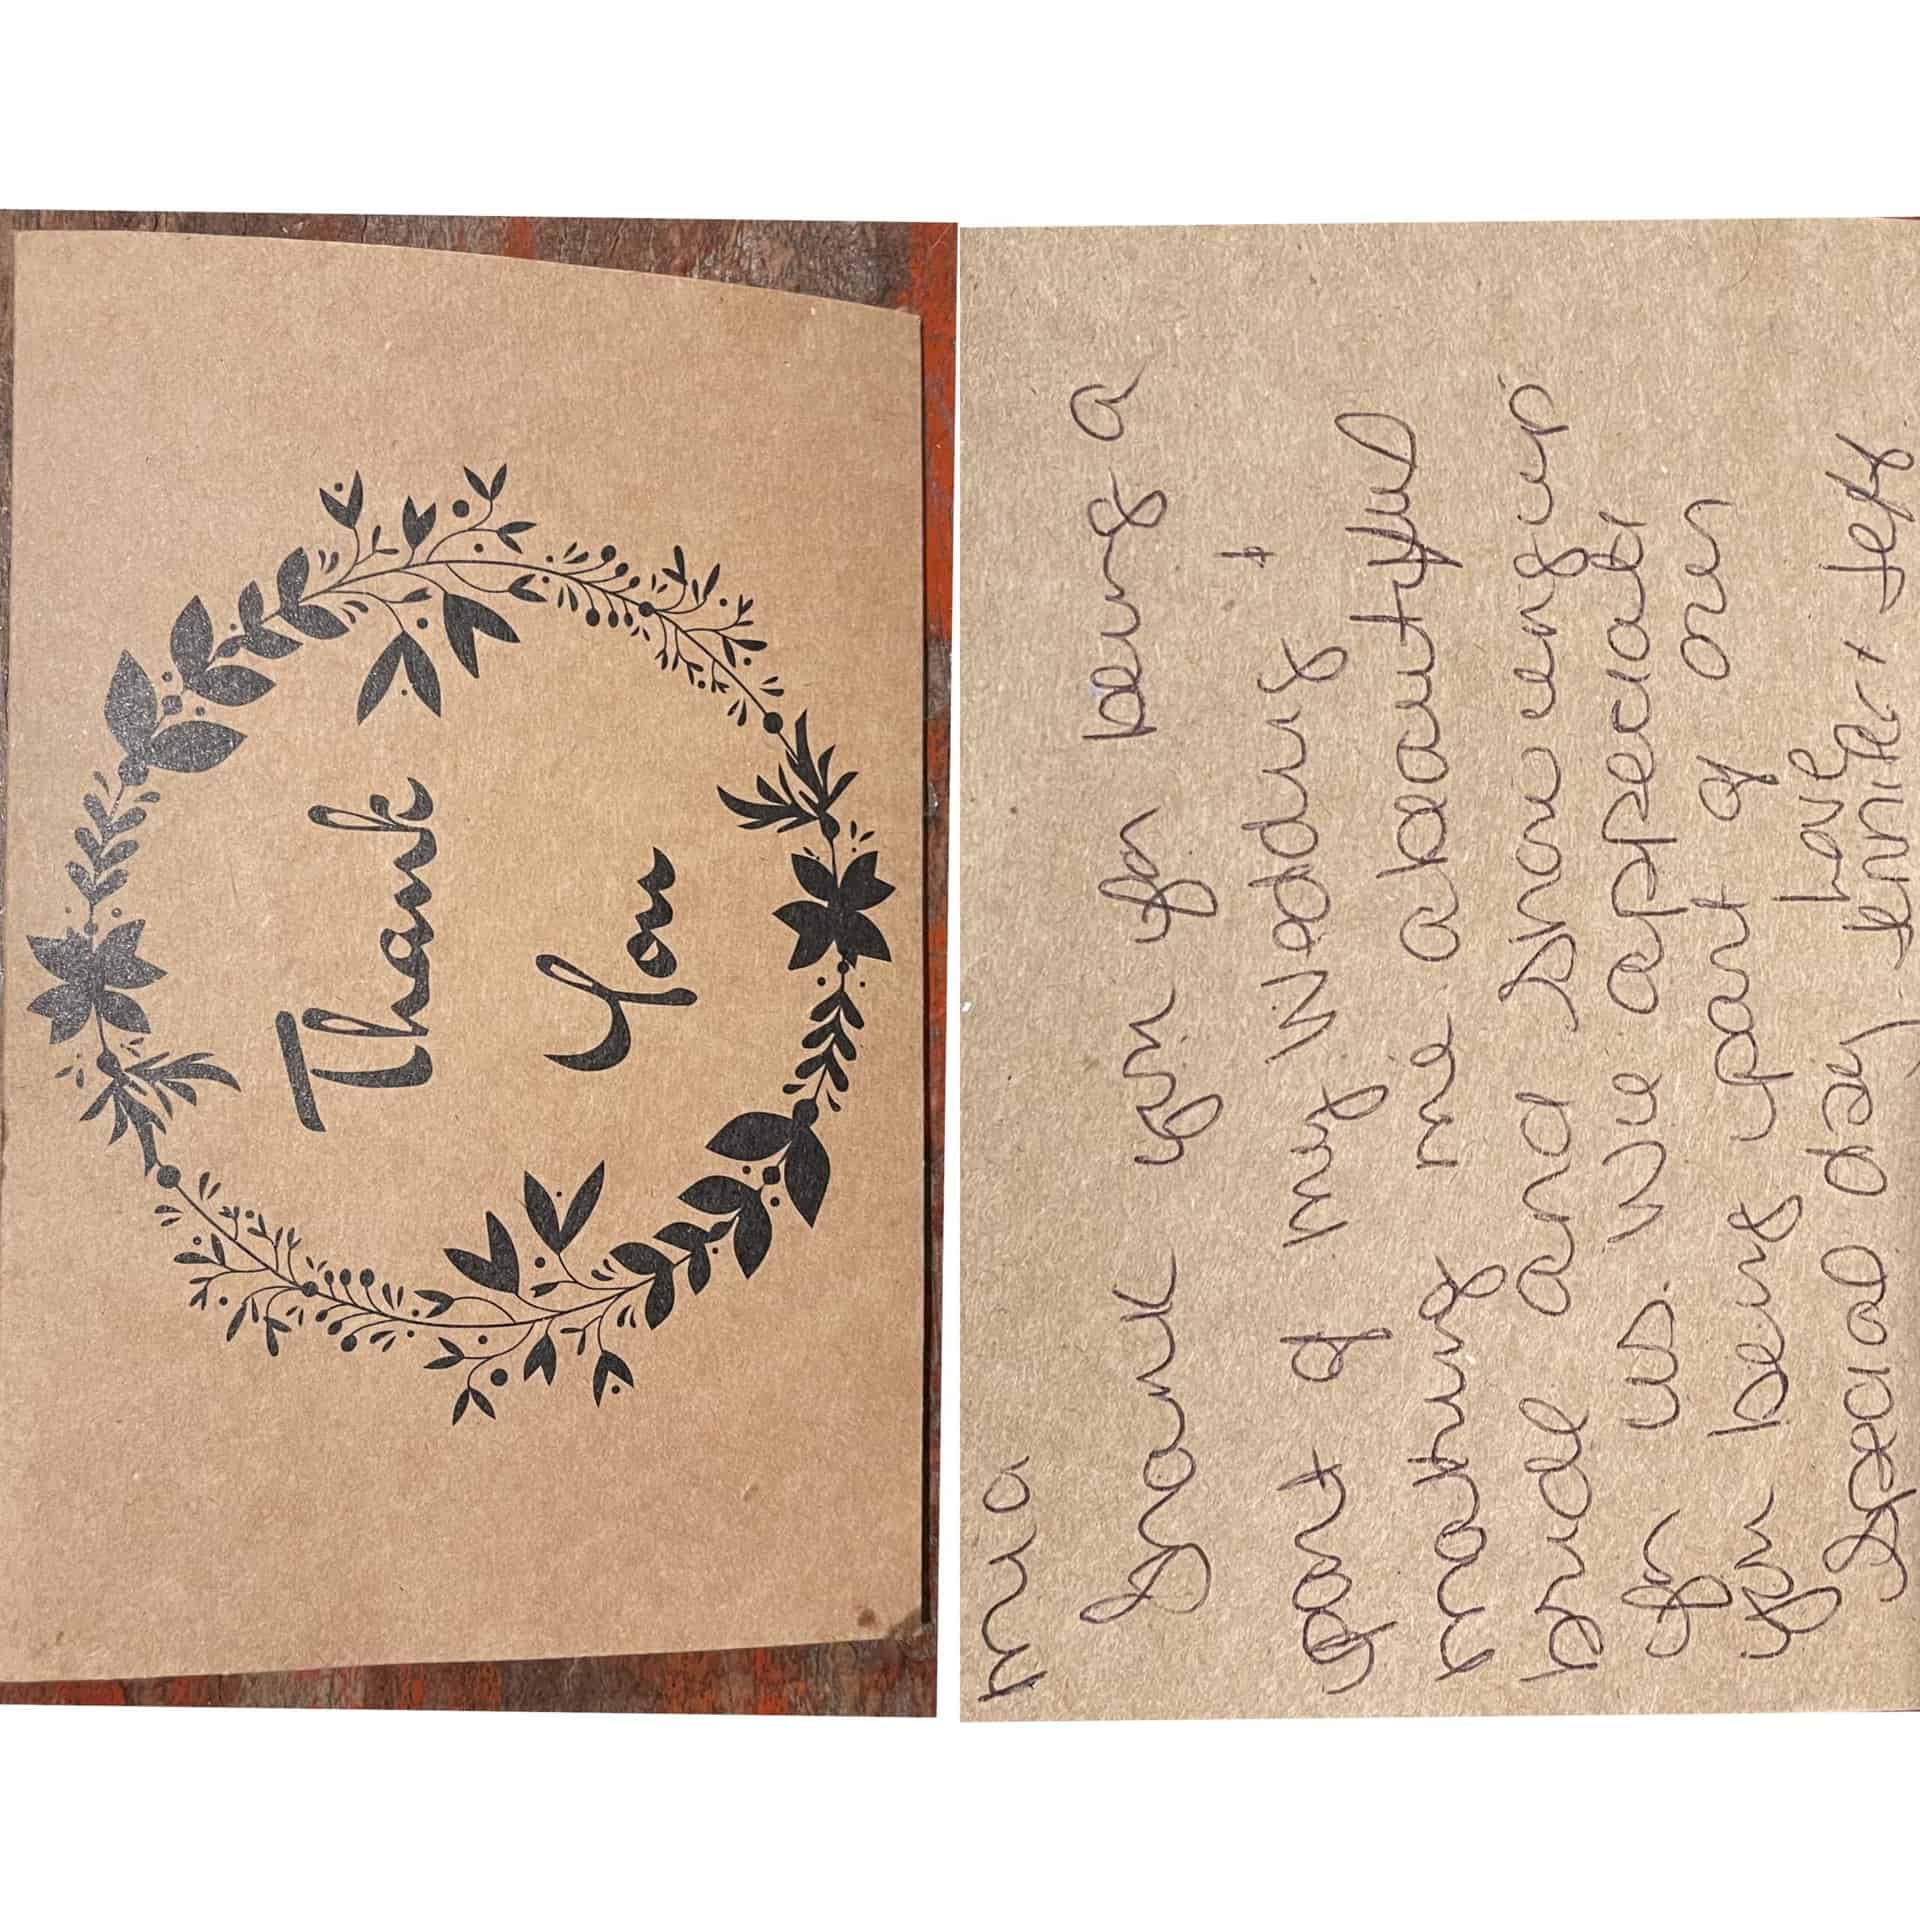 Thank
You
Mia
Thank you for being a
part of my Wedding +
making me a beautiful
bride and showing up
for us. We appreciate
you being part of our
special day, Love
Jennifer + Jeff